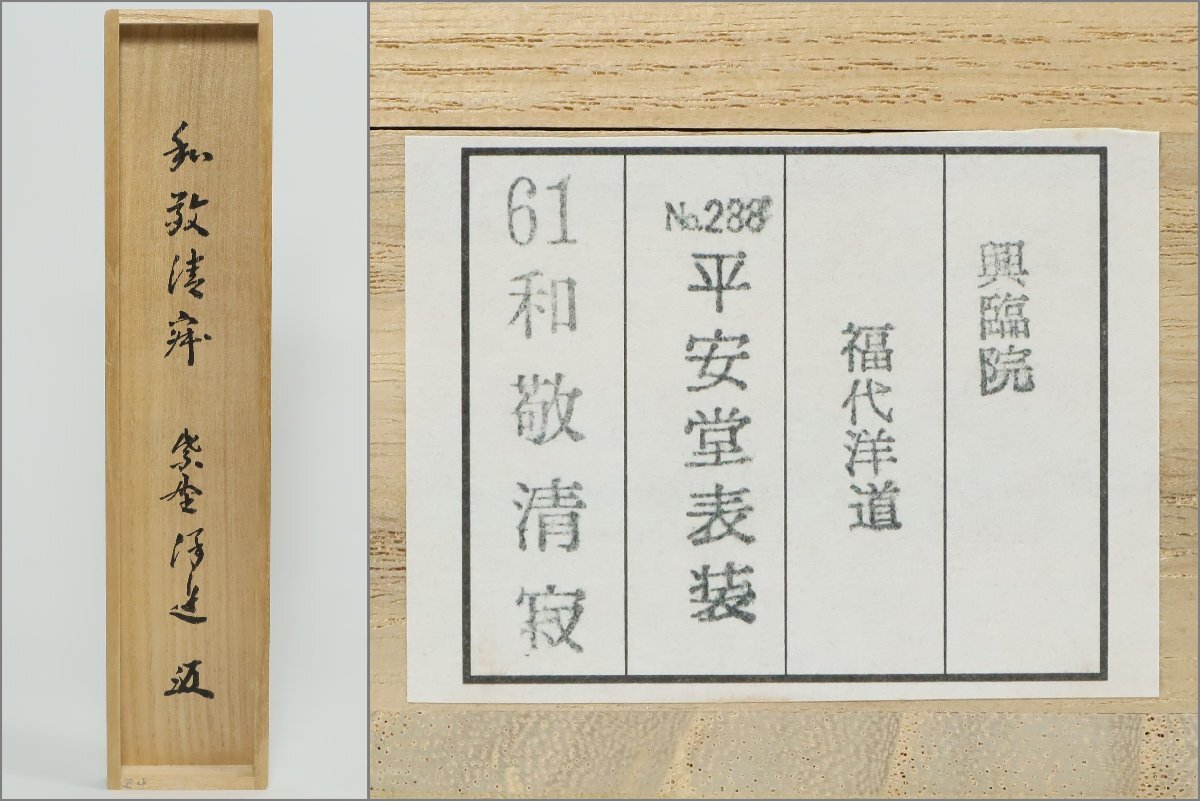 和敬清寂 紫野洋道 
興臨院
福代洋道
No.288 平安堂表装
61 和敬清寂